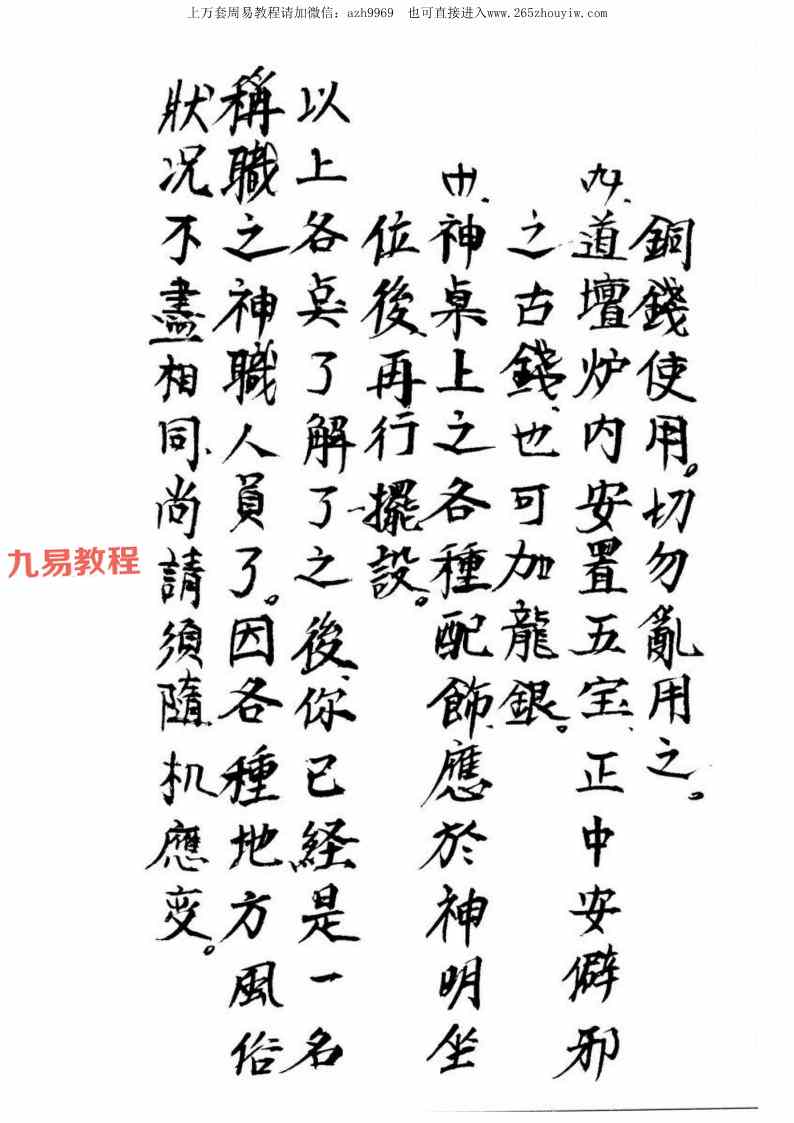 上万套周易教程请加微信：azh9969 也可直接进入www.265zhouyiw.com
銅錢使用。切勿亂用之。
九、道壇炉内安置五宝、正中安僻邪
之古錢、也可加龍銀。
十、神桌上之各種配飾、應於神明坐
位後、再行擺設。
以上各点了解了之後、你已経是一名
稱職之神職人員了。因各種地方風俗
狀况不盡相同、尚請須隨机應变。
九易教程